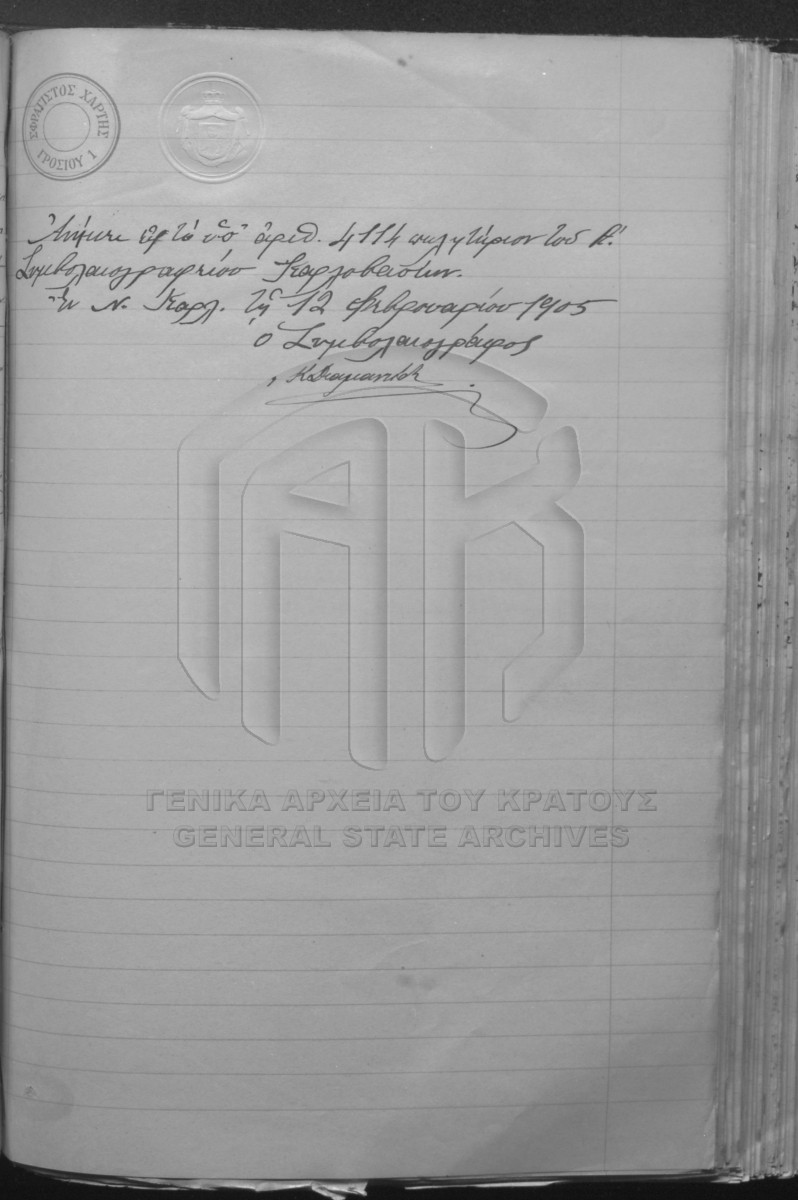 ΣΦΡΑΓΙΣΤΟΣ ΧΑΡΤΗΣ
ΓΡΟΣΙΟΥ 1
Ἀνήκει εἰς τὸ ὑπ' ἀριθ. 4114 πωλητήριον τοῦ Β.'
Συμβολαιογραφείου Καρλοβασίων.
Ἐν Ν. Καρλ. τῇ 12 Φεβρουαρίου 1905
ὁ Συμβολαιογράφος
ΓΕΝΙΚΑ ΑΡΧΕΙΑ ΤΟΥ ΚΡΑΤΟΥΣ
GENERAL STATE ARCHIVES